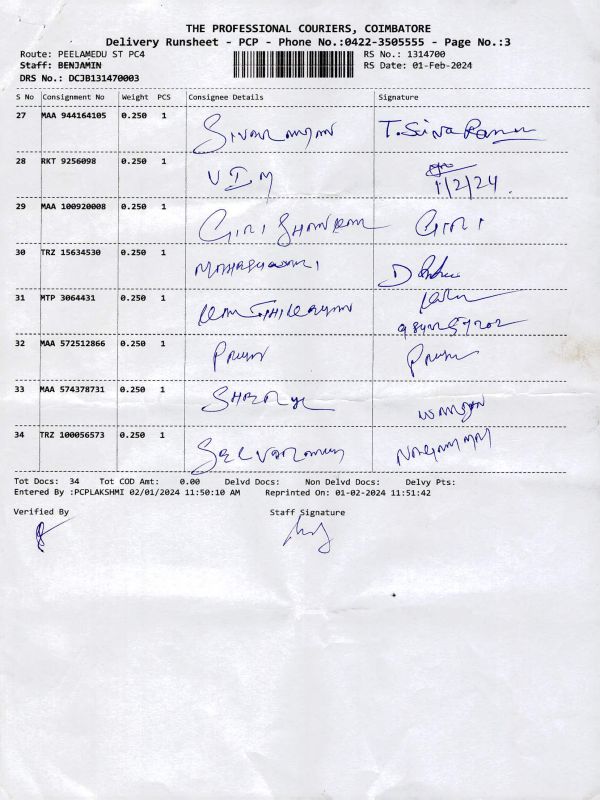 THE PROFESSIONAL COURIERS, COIMBATORE
Delivery Runsheet - PCP - Phone No.:0422-3505555 - Page No.:3
Route: PEELAMEDU ST PC4 RS No.: 1314700
Staff: BENJAMIN RS Date: 01-Feb-2024
DRS No.: DCJB131470003
S No Consignment No Weight PCS Consignee Details Signature
27 MAA 944164105 0.250 1
28 RKT 9256098 0.250 1 1/2/24.
29 MAA 100920008 0.250 1 GIRI SHANKAR GIRI
30 TRZ 15634530 0.250 1
31 MTP 3064431 0.250 1
32 MAA 572512866 0.250 1
33 MAA 574378731 0.250 1
34 TRZ 100056573 0.250 1
Tot Docs: 34 Tot COD Amt: 0.00 Delvd Docs: Non Delvd Docs: Delvy Pts:
Entered By :PCPLAKSHMI 02/01/2024 11:50:10 AM Reprinted On: 01-02-2024 11:51:42
Verified By Staff Signature